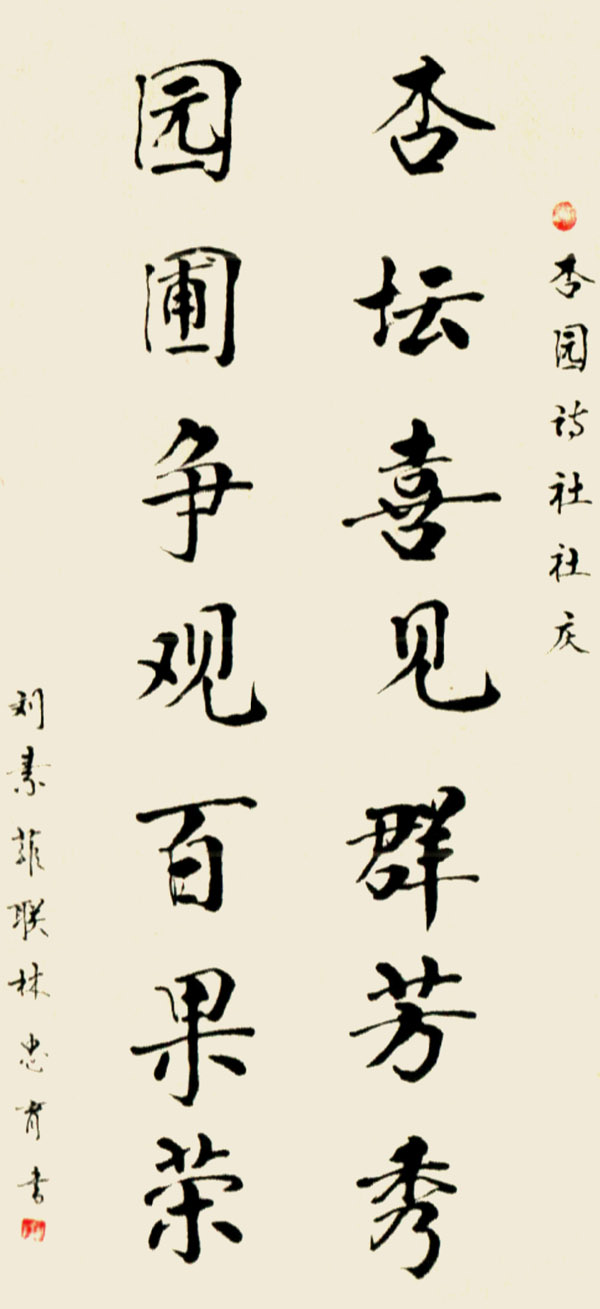 杏园诗社社庆
杏坛喜见群芳秀
园圃争观百果荣
刘素菲联林忠育书